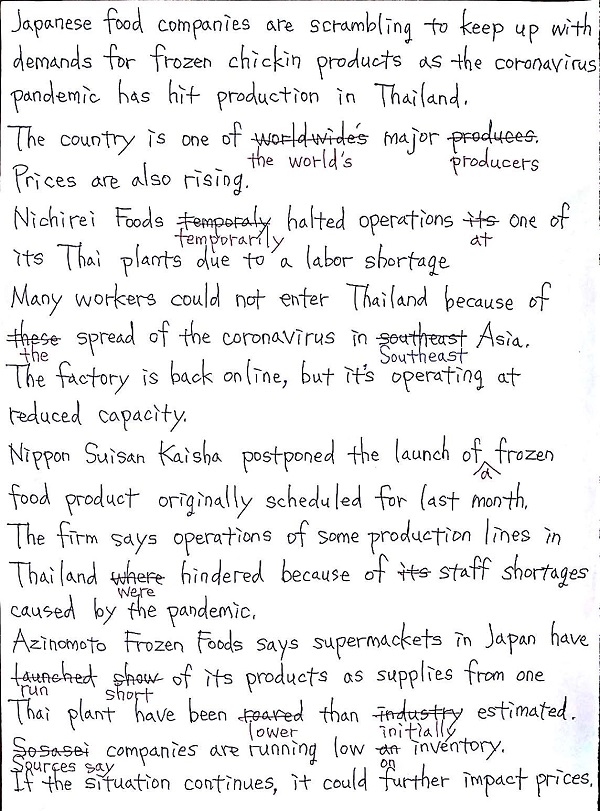 Japanese food companies are scrambling to keep up with
demands for frozen chickin products as the coronavirus
pandemic has hit production in Thailand.
The country is one of worldwide's major produces.
the world's producers
Prices are also rising.
Nichirei Foods temporaly halted operations its one of
temporarily at
its Thai plants due to a labor shortage
Many workers could not enter Thailand because of
these spread of the coronavirus in southeast Asia.
the Southeast
The factory is back online, but it's operating at
reduced capacity.
Nippon Suisan Kaisha postponed the launch of frozen
a
food product originally scheduled for last month.
The firm says operations of some production lines in
Thailand where hindered because of its staff shortages
were
caused by the pandemic.
Azinomoto Frozen Foods says supermackets in Japan have
launched show of its products as supplies from one
run short
Thai plant have been roared than industry estimated.
lower initially
Sosasei companies are running low an inventory.
Sources say on
If the situation continues, it could further impact prices.